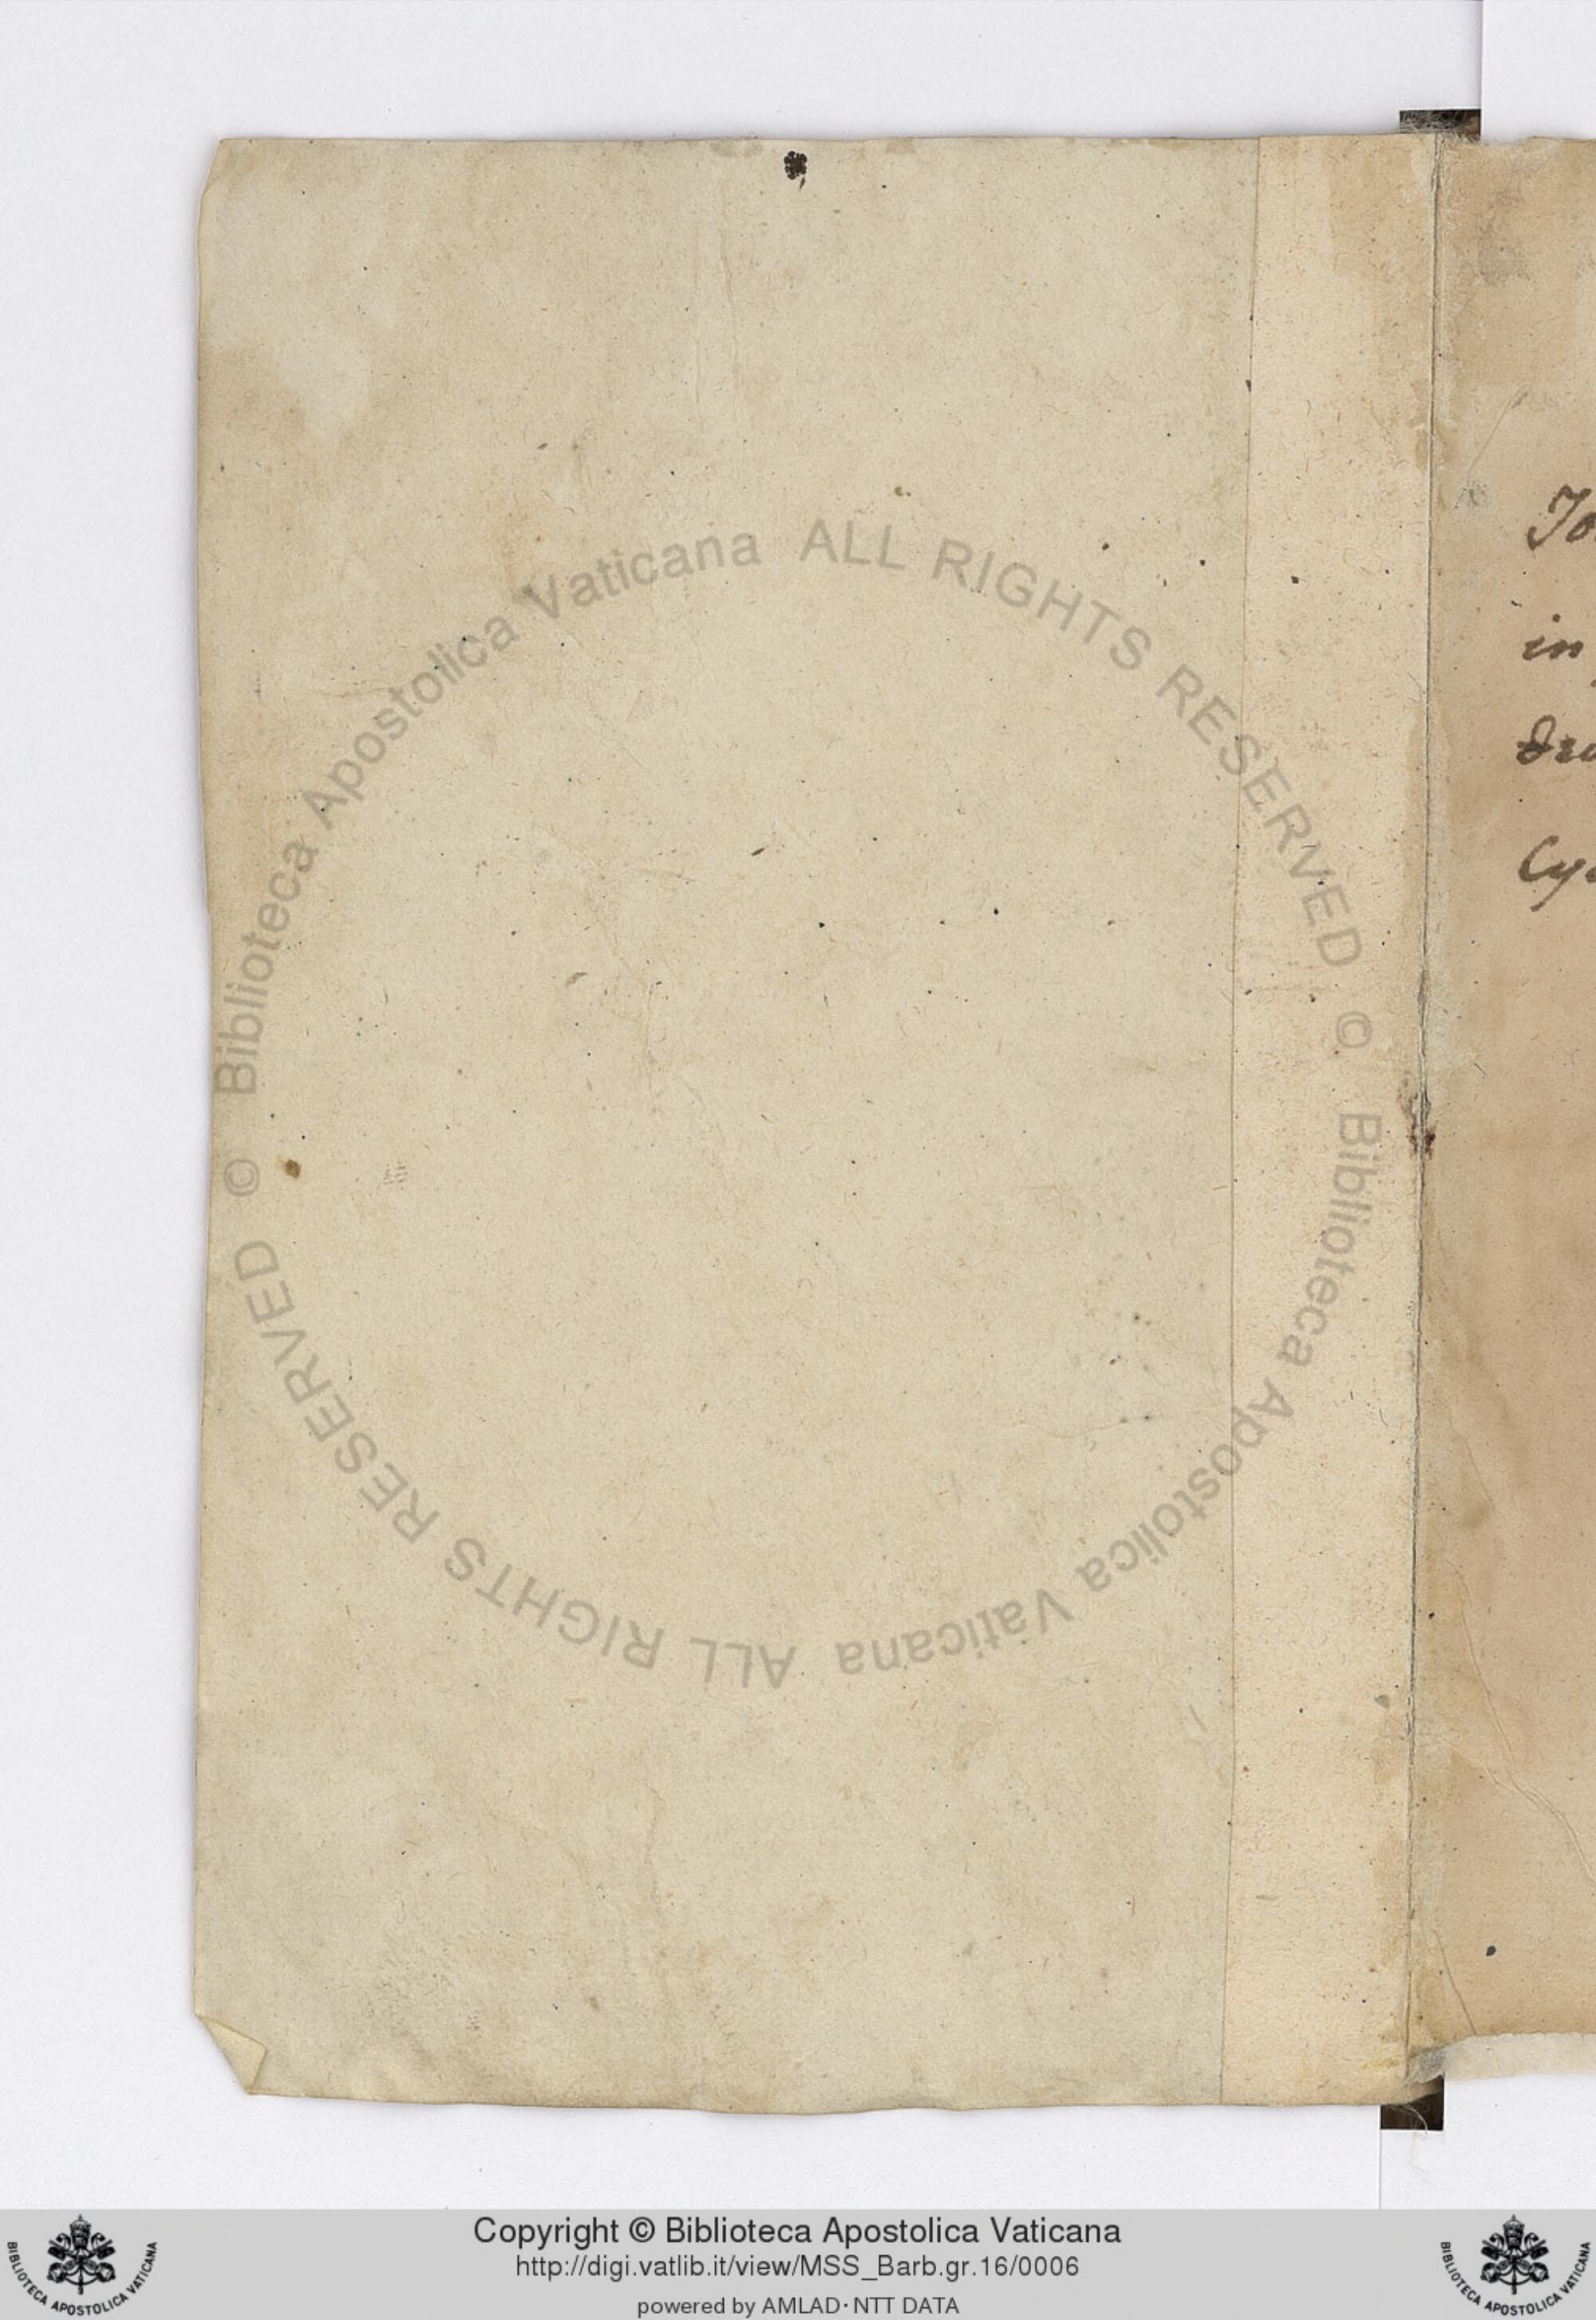 © Biblioteca Apostolica Vaticana ALL RIGHTS RESERVED © Biblioteca Apostolica Vaticana ALL RIGHTS RESERVED
in
Copyright © Biblioteca Apostolica Vaticana
http://digi.vatlib.it/view/MSS_Barb.gr.16/0006
powered by AMLAD·NTT DATA
BIBLIOTECA APOSTOLICA VATICANA
BIBLIOTECA APOSTOLICA VATICANA